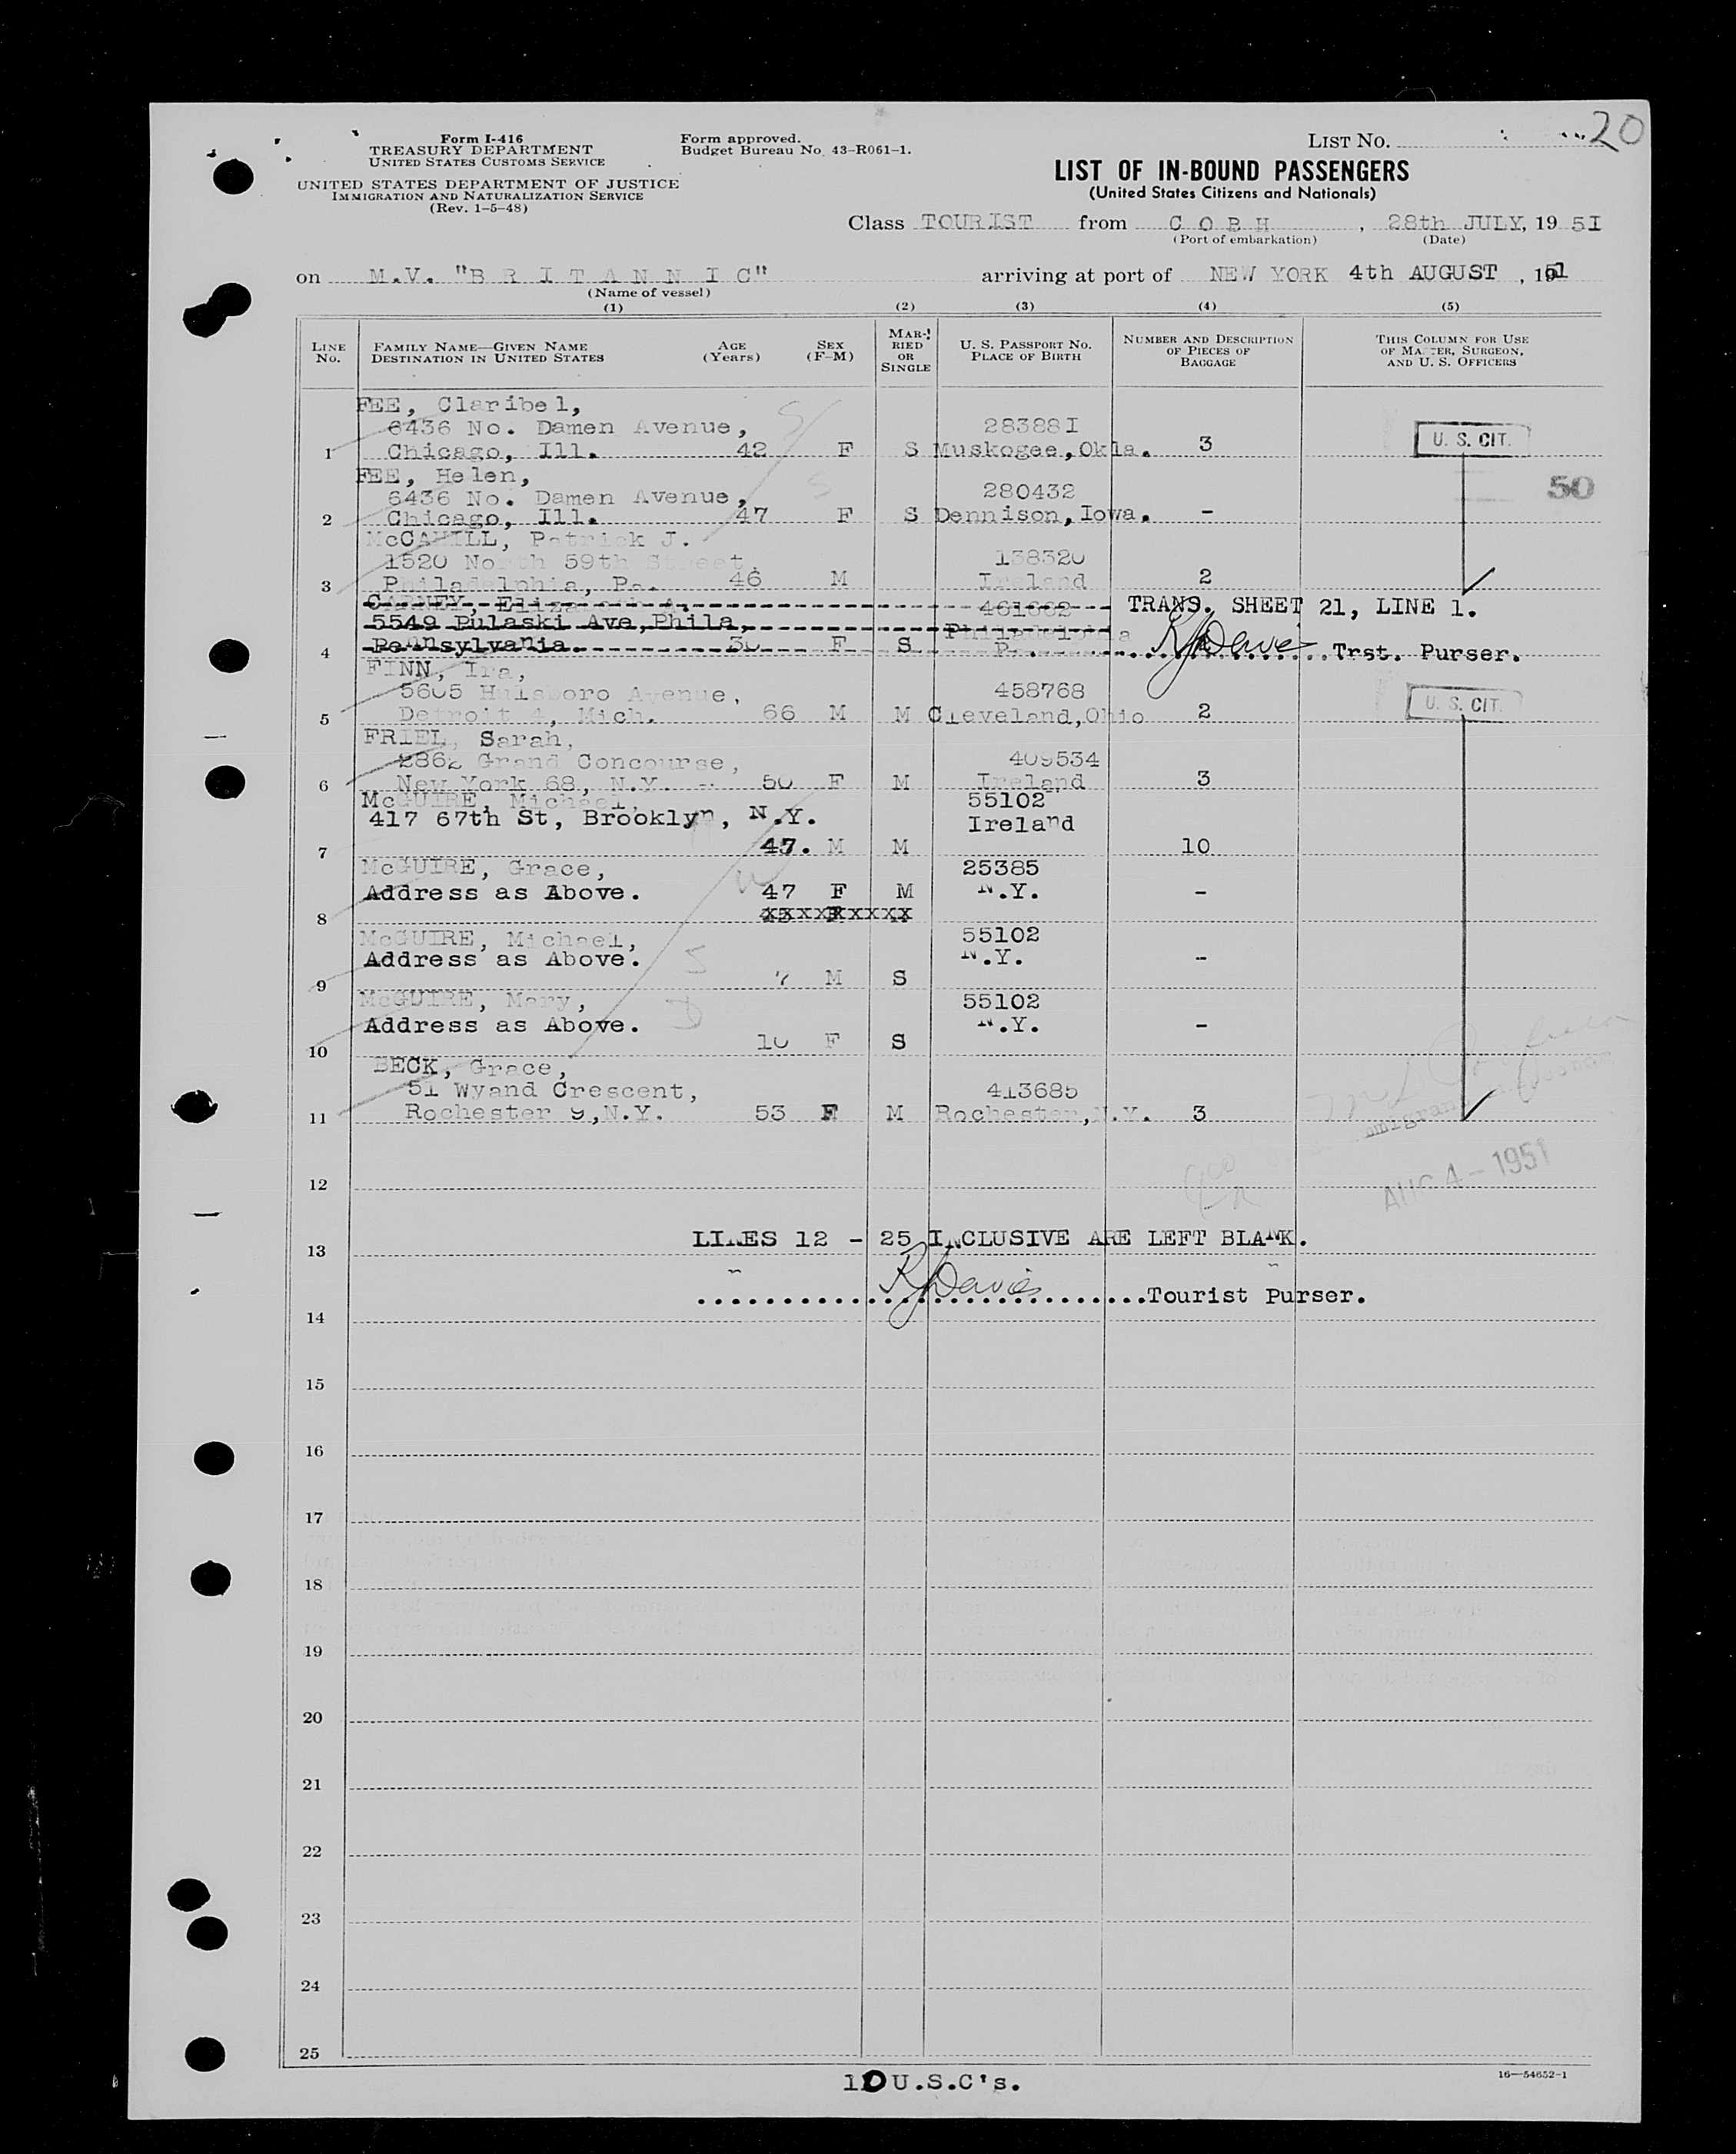 20
Form I-416
TREASURY DEPARTMENT
UNITED STATES CUSTOMS SERVICE
UNITED STATES DEPARTMENT OF JUSTICE
IMMIGRATION AND NATURALIZATION SERVICE
(Rev. 1-5-48)
Form approved.
Budget Bureau No. 43-R061-1.
LIST NO.
LIST OF IN-BOUND PASSENGERS
(United States Citizens and Nationals)
Class TOURIST from C O B H , 28th JULY, 19 51
(Port of embarkation) (Date)
on M.V. "B R I T A N N I C" arriving at port of NEW YORK 4th AUGUST , 1951
(Name of vessel)
(1) (2) (3) (4) (5)
LINE NO. FAMILY NAME—GIVEN NAME DESTINATION IN UNITED STATES AGE (Years) SEX (F-M) MARRIED OR SINGLE U. S. PASSPORT NO. PLACE OF BIRTH NUMBER AND DESCRIPTION OF PIECES OF BAGGAGE THIS COLUMN FOR USE OF MASTER, SURGEON, AND U. S. OFFICERS
FEE, Claribel,
6436 No. Damen Avenue, 283881
1 Chicago, Ill. 42 F S Muskogee, Okla. 3 U. S. CIT.
FEE, Helen,
6436 No. Damen Avenue, 280432 50
2 Chicago, Ill. 47 F S Dennison, Iowa. -
McCAHILL, Patrick J.
1520 North 59th Street, 138320
3 Philadelphia, Pa. 46 M Ireland 2
CARNEY, Elizabeth A. 461662 TRANS. SHEET 21, LINE 1.
5549 Pulaski Ave, Phila, Philadelphia
4 Pennsylvania. 30 F S Pa. R J Davies Trst. Purser.
FINN, Ira,
5605 Avenue, 458768
5 Detroit 4, Mich. 66 M M Cleveland, Ohio 2 U. S. CIT.
FRIEL, Sarah,
2862 Grand Concourse, 409534
6 New York 68, N.Y. 50 F M Ireland 3
McGUIRE, Michael, 55102
417 67th St, Brooklyn, N.Y. Ireland
7 47. M M 10
McGUIRE, Grace, 25385
Address as Above. 47 F M N.Y. -
8 xxxxxxxxx
McGUIRE, Michael, 55102
Address as Above. N.Y. -
9 7 M S
McGUIRE, Mary, 55102
Address as Above. N.Y. -
10 10 F S
BECK, Grace,
51 Wyand Crescent, 413685
11 Rochester 9, N.Y. 53 F M Rochester, N.Y. 3
AUG 4 - 1951
12
LINES 12 - 25 INCLUSIVE ARE LEFT BLANK.
13
R J Davies Tourist Purser.
14
15
16
17
18
19
20
21
22
23
24
25
10 U.S.C's.
16—54652-1